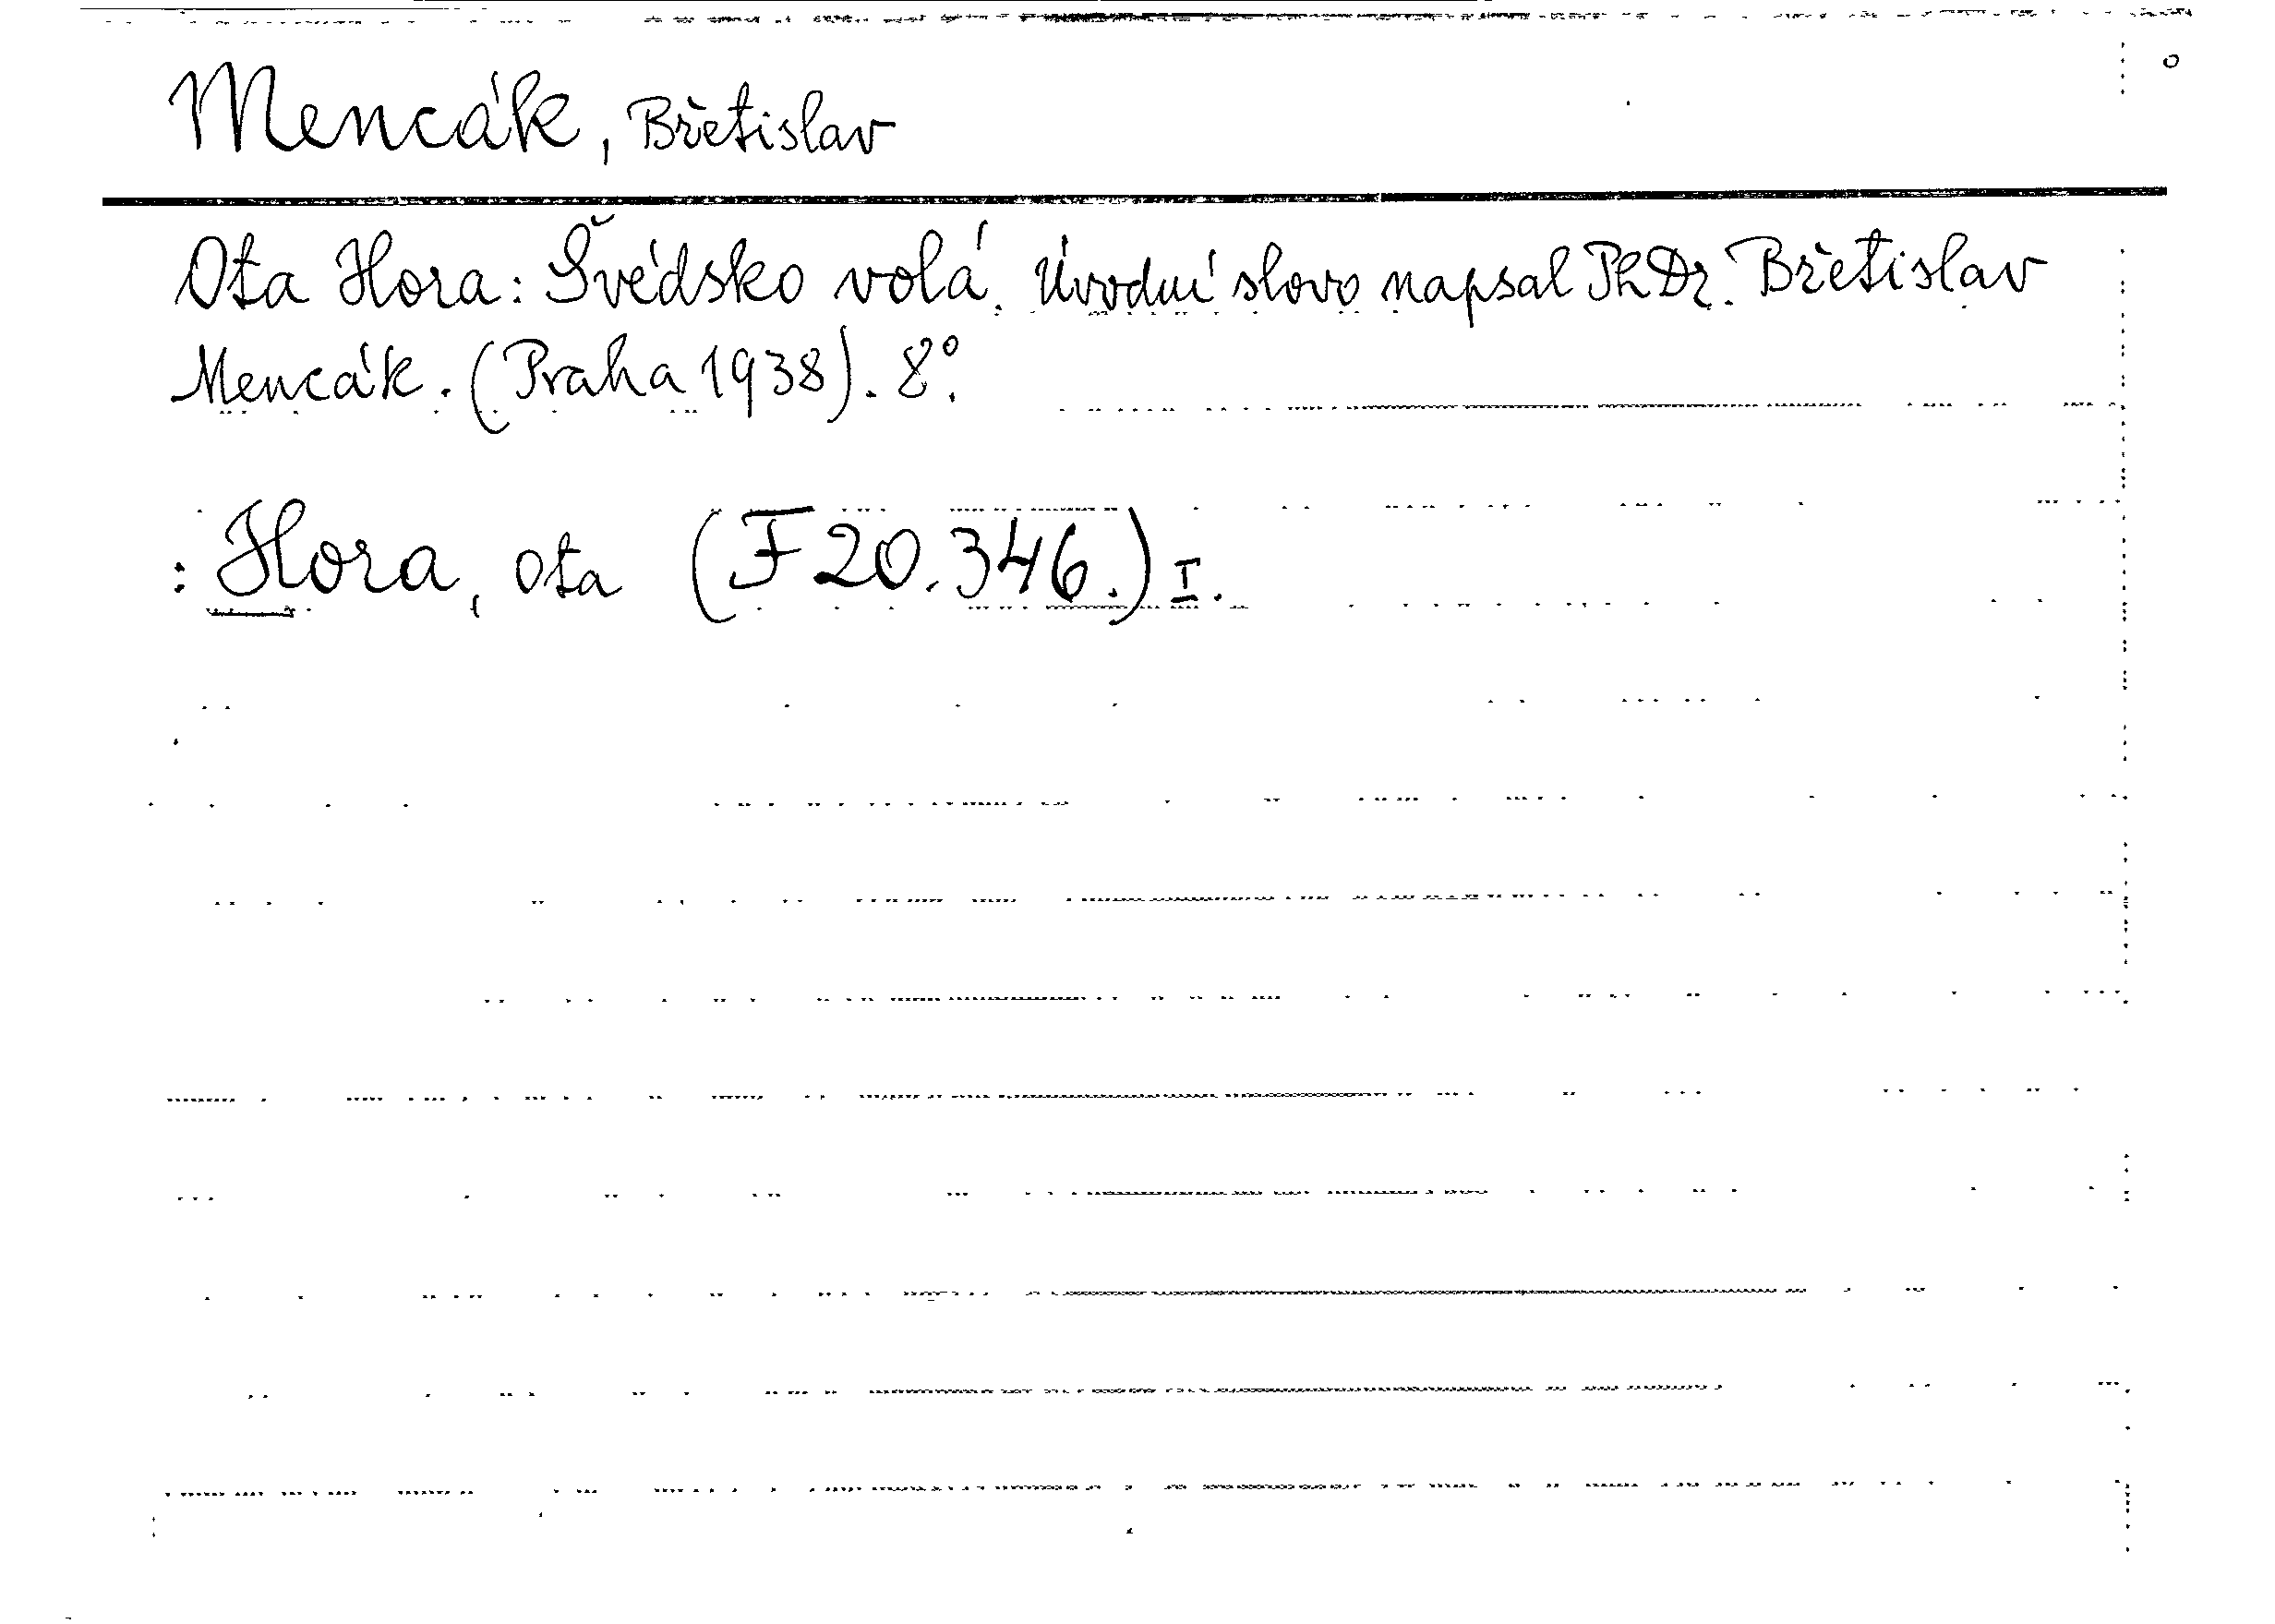 Mencák, Břetislav
Ota Hora: Švédsko volá. Úvodní slovo napsal PhDr. Břetislav
Mencák. (Praha 1938). 8°.
: Hora, Ota (F 20.346.) I.